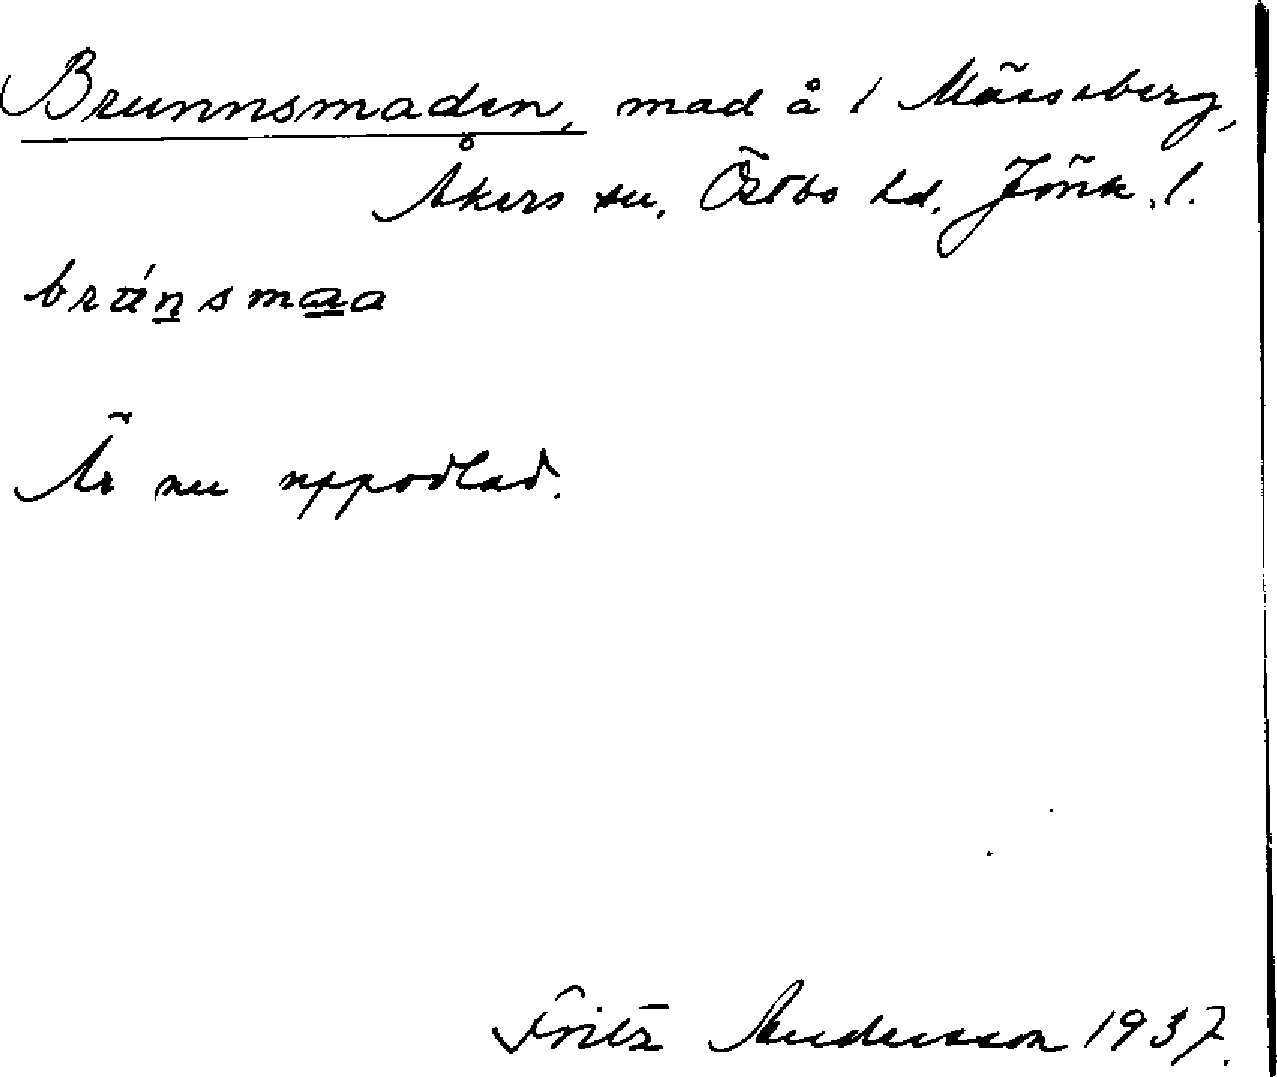 Brunnsmaden, mad å 1 Mässeberg,
Åkers sn, Östbo hd. Jönk. l.
Är nu uppodlad.
Fritz Andersson 1937.